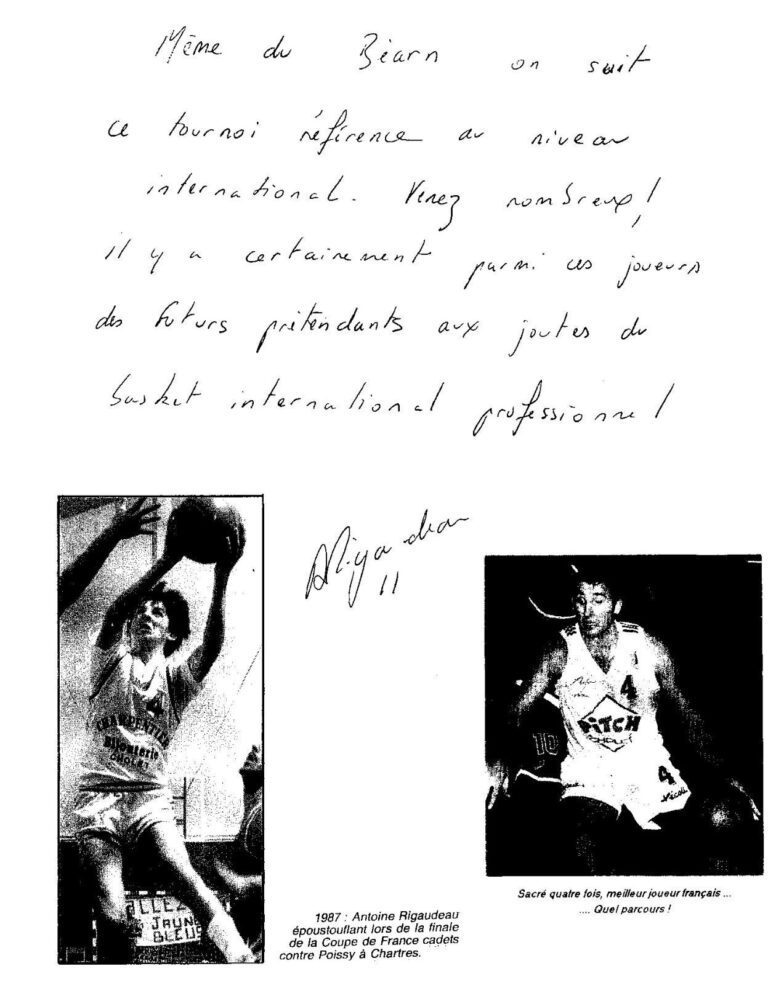 Même du Béarn on suit
ce tournoi référence au niveau
international. Venez nombreux!
il y a certainement parmi ces joueurs
des futurs prétendants aux joutes du
basket international professionnel
Rigaudeau
11
4
CHARPENTIER
Bijouterie
CHOLET
ALLEZ
JAUNE
BLEUS
4
PITCH
CHOLET
10
4
1987 : Antoine Rigaudeau
époustouflant lors de la finale
de la Coupe de France cadets
contre Poissy à Chartres.
Sacré quatre fois, meilleur joueur français ...
.... Quel parcours !